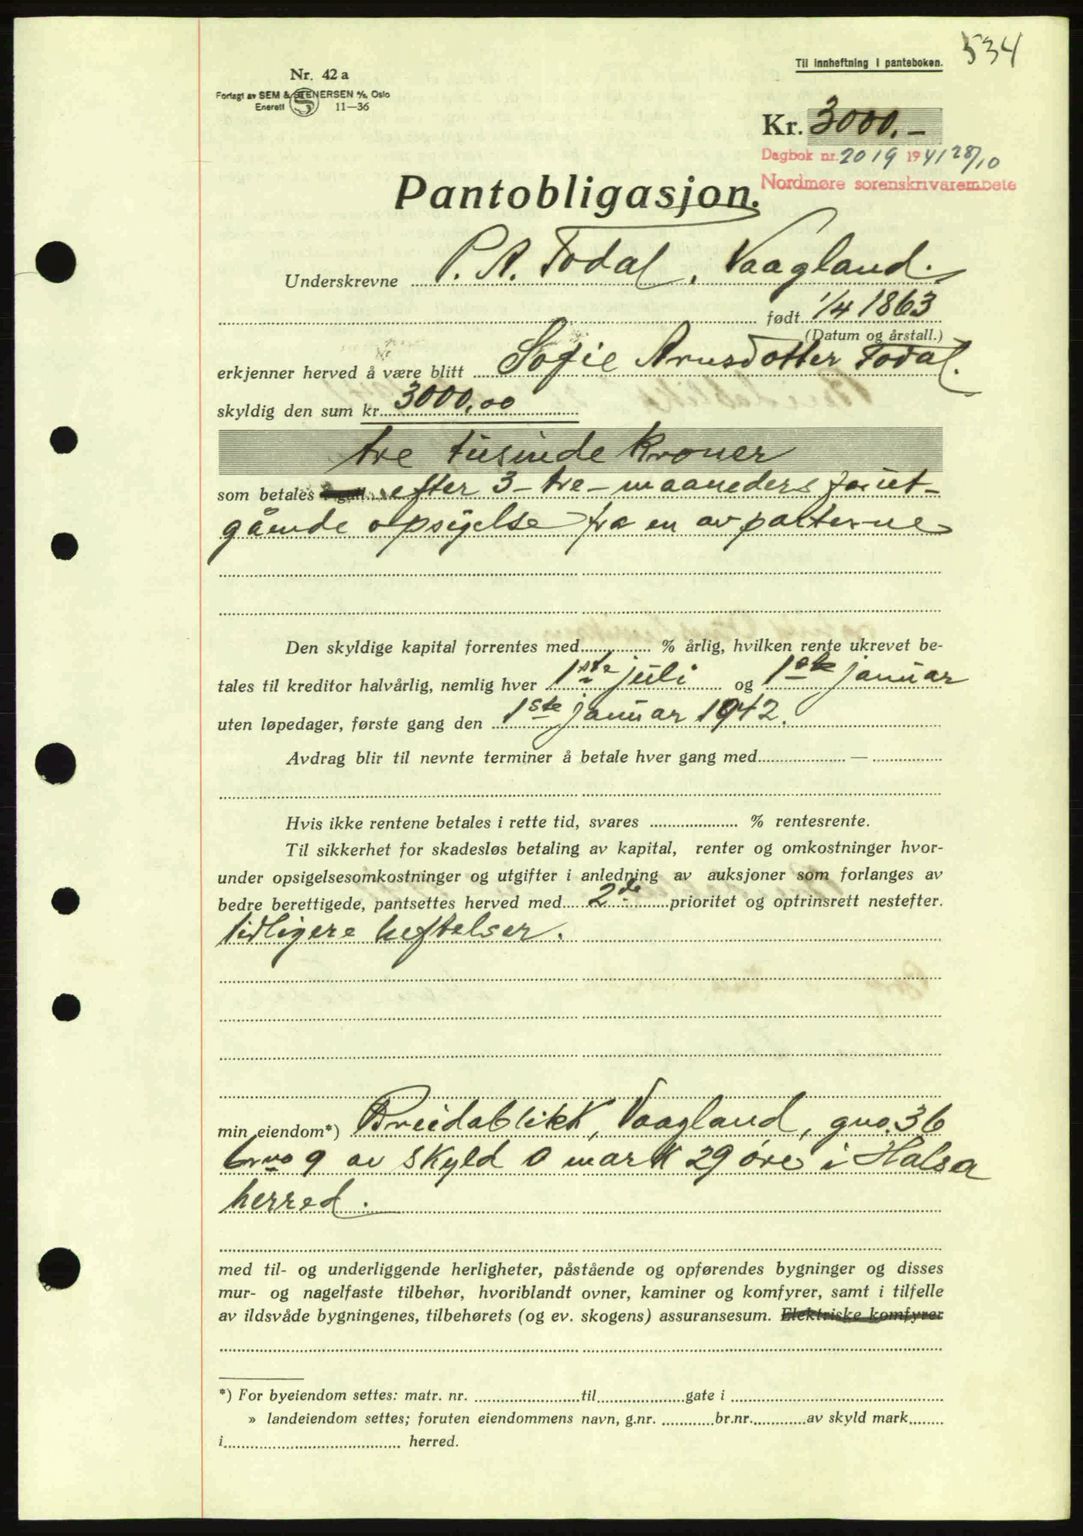 534
Til innheftning i panteboken.
Nr. 42 a
Forlagt av SEM & STENERSEN A/S, Oslo
Enerett 11—36
Kr. 3000.—
Dagbok nr. 2019 1941 28/10
Nordmøre sorenskrivarembete
Pantobligasjon.
Underskrevne P. A. Todal, Vaagland.
født 1/4 1863
(Datum og årstall.)
erkjenner herved å være blitt Sofie Arnsdotter Todal.
skyldig den sum kr. 3000,00
tre tusinde kroner
som betales efter 3-tre-maaneders forut-
gående opsigelse fra en av parterne
Den skyldige kapital forrentes med % årlig, hvilken rente ukrevet be-
tales til kreditor halvårlig, nemlig hver 1ste juli og 1ste januar
uten løpedager, første gang den 1ste januar 1942.
Avdrag blir til nevnte terminer å betale hver gang med —
Hvis ikke rentene betales i rette tid, svares % rentesrente.
Til sikkerhet for skadesløs betaling av kapital, renter og omkostninger hvor-
under opsigelsesomkostninger og utgifter i anledning av auksjoner som forlanges av
bedre berettigede, pantsettes herved med 2de prioritet og optrinsrett nestefter.
tidligere heftelser.
min eiendom*) Breidablikk, Vaagland, gno. 36
bno 9 av skyld 0 mark 29 øre i Halsa
herred.
med til- og underliggende herligheter, påstående og opførendes bygninger og disses
mur- og nagelfaste tilbehør, hvoriblandt ovner, kaminer og komfyrer, samt i tilfelle
av ildsvåde bygningenes, tilbehørets (og ev. skogens) assuransesum. Elektriske komfyrer
*) For byeiendom settes: matr. nr. til gate i
» landeiendom settes; foruten eiendommens navn, g.nr. br.nr. av skyld mark
i herred.